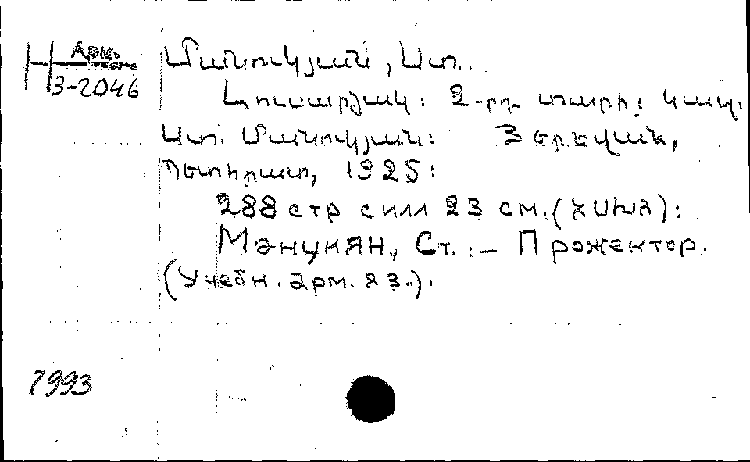 Арм.
3-2046
Մանուկյան, Ստ.
Լուսարձակ: 2-րդ տարի: Կազմ:
Ստ. Մանուկյան: Յերեվան,
Պետհրատ, 1925:
288 стр с илл 23 см. (ՀՍԽՀ):
Манукян, Ст. :— Прожектор.
(Учебн. арм. яз.).
7993